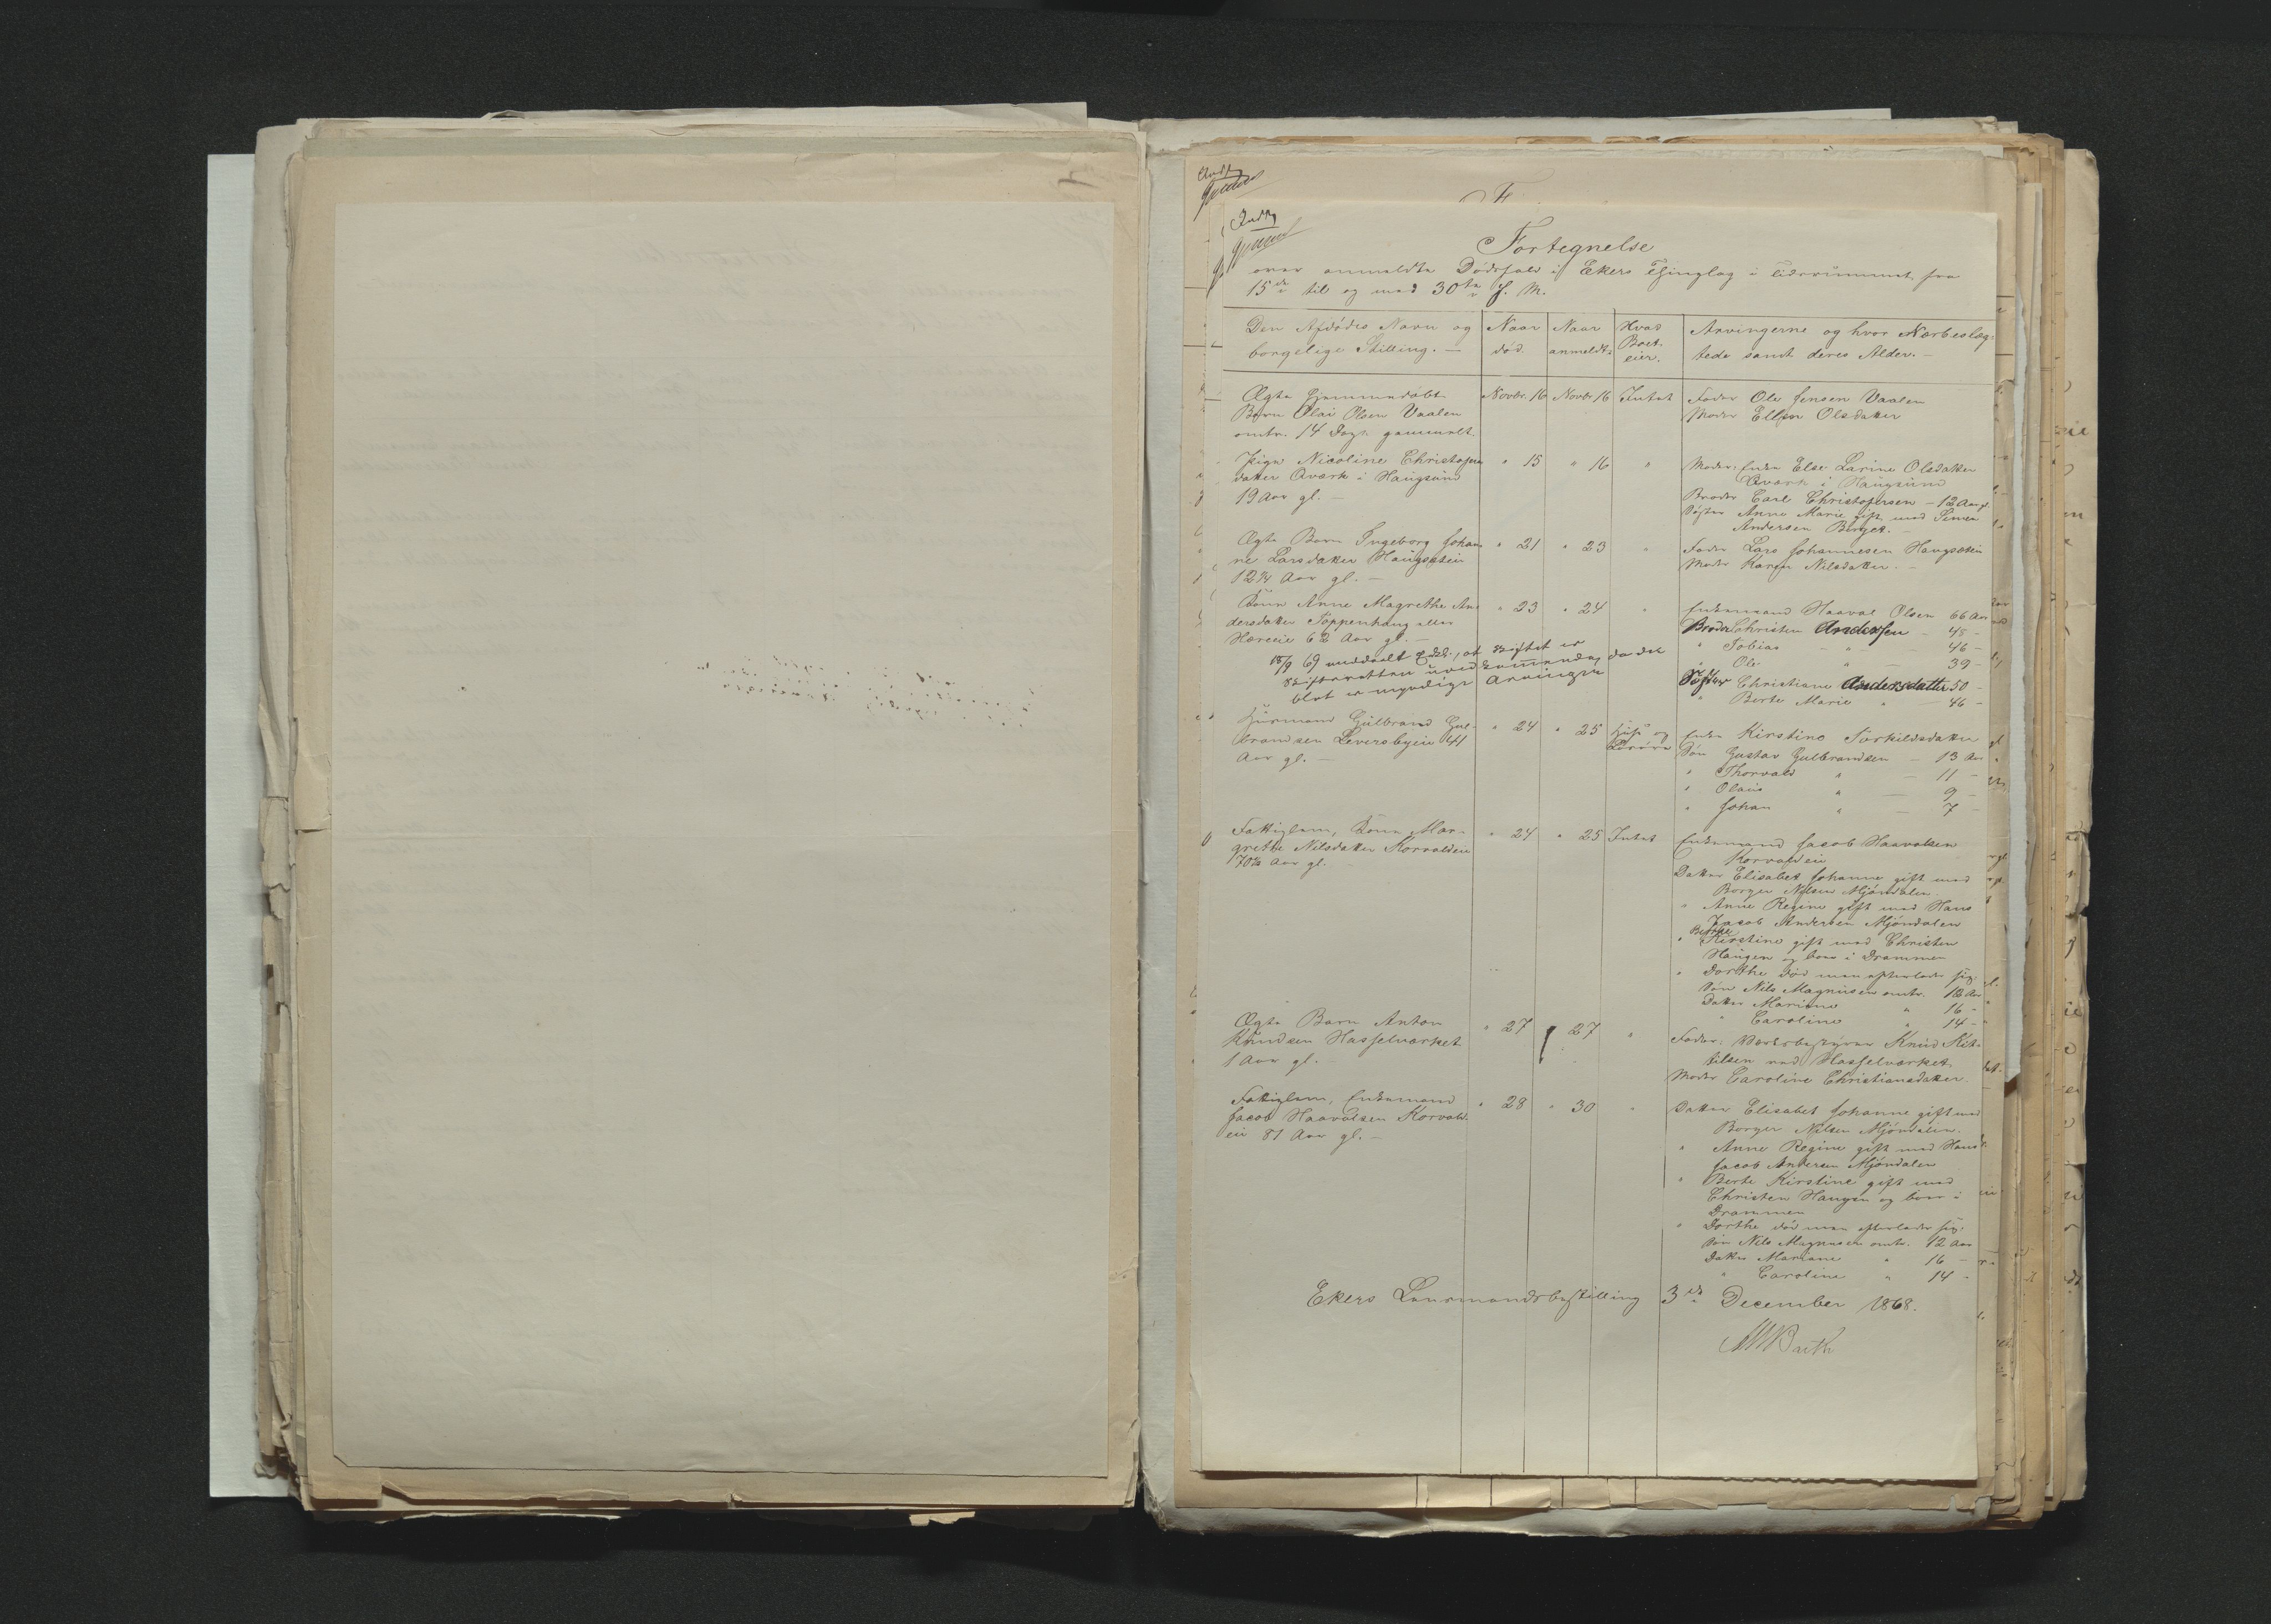 Fortegnelse
over anmeldte Dødsfald i Ekers Thinglag i Tidsrummet fra
15de til og med 30te f. M.
Den Afdødes Navn og borgelige Stilling. —
Naar død.
Naar anmeldt.
Hvad Boet eier.
Arvingerne og hvor Nærbeslæg-
tede samt deres Alder. —
Ægte hjemmedøbt Novbr. 16 Novbr 16 Intet Fader Ole Jensen Vaalen
Barn Olai Olsen Vaalen Moder Ellen Olsdatter
omtr. 14 Dage gammelt.
Pige Nicoline Christofers " 15 " 16 " Moder: Enke Else Larine Olsdatter
datter Aværk i Haugsund Aværk i Haugsund
19 Aar gl. — Broder Carl Christofersen — 12 Aar gl.
Søster Anne Marie gift med Simen
Andersen Berget.
Ægte Barn Ingeborg Johan- " 21 " 23 " Fader Lars Johannesen Haugsstein
ne Larsdatter Haugsstein Moder Karen Nilsdatter. —
12¾ Aar gl. —
Kone Anne Magrethe An- " 23 " 24 " Enkemand Haaval Olsen 66 Aar
dersdatter Toppenhaug eller Broder Christen Andersen — 48 —
Horceie 62 Aar gl. — " Tobias " — 46 —
18/9 69 meddeelt , at Skiftet er " Ole " — 39 —
Skifteretten uvedkommende, da der Søster Christiane Andersdatter 50 —
blot er myndige Arvinger " Berte Marie " — 46 —
Huusmand Gulbrand Gul- " 24 " 25 Huse og Enke Kirstine Torkildsdatter
brandsen Leversbyeie 41 Løsøre Søn Gustav Gulbrandsen — 13 Aar
Aar gl. — " Thorvald " — 11 —
" Olaus " — 9 —
" Johan " — 7 —
Fattiglem, Kone Mar- " 24 " 25 Intet Enkemand Jacob Haavalsen
grethe Nilsdatter Korvaldeie Korvaldeie
70¾ Aar gl. — Datter Elisabet Johanne gift med
Borger Nilsen Mjøndalen
" Anne Regine gift med Hans
Jacob Andersen Mjøndalen
Berthe
" Kirstine gift med Christen
Haugen og boer i Drammen
" Dorthe død men efterlader sig:
Søn Nils Magnusen omtr. 12 Aar
Datter Mariane " 16 —
" Caroline " 14 —
Ægte Barn Anton " 27 " 27 " Fader: Værksbestyrer Knud Kit-
Knudsen Hasselværket tilsen ved Hasselværket
1 Aar gl. — Moder Caroline Christiansdatter.
Fattiglem, Enkemand " 28 " 30 " Datter Elisabet Johanne gift med
Jacob Haavalsen Korvald- Borger Nilsen Mjøndalen.
eie 81 Aar gl. — " Anne Regine gift med Hans
Jacob Andersen Mjøndalen
" Berte Kirstine gift med
Christen Haugen og boer i
Drammen
" Dorthe død men efterlader sig:
Søn Nils Magnusen omtr. 12 Aar
Datter Mariane " 16 —
" Caroline " 14 —
Ekers Lensmandsbestilling 3de December 1868.